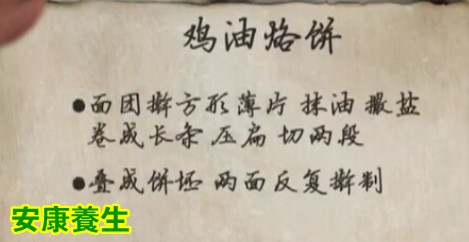 鸡油烙饼
●面团擀方形薄片 抹油 撒盐
卷成长条 压扁 切两段
●叠成饼坯 两面反复擀制
安康養生